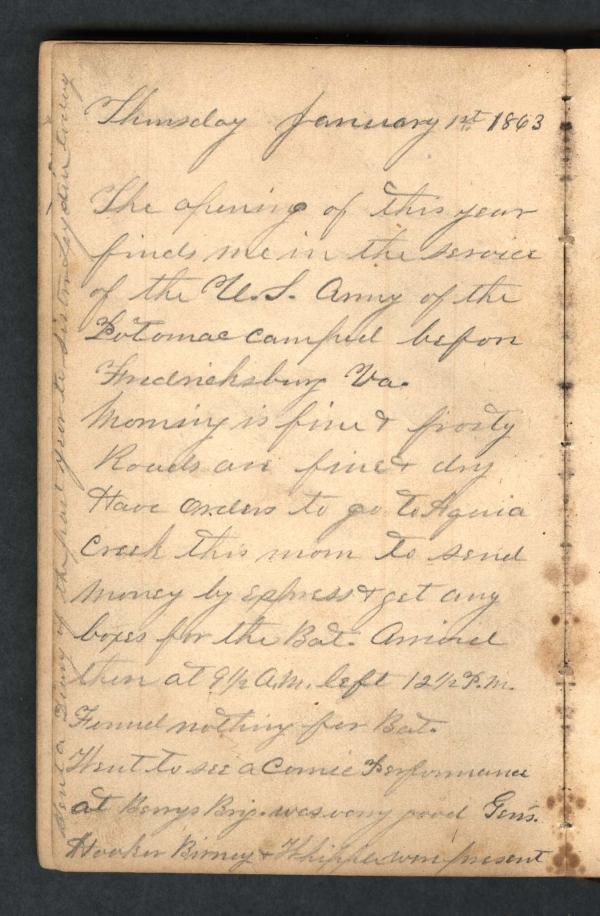 Thursday January 1st 1863
The opening of this year
finds me in the service
of the U.S. Army of the
Potomac camped before
Fredricksburg Va.
Morning is fine & frosty
Roads are fine & dry
Have orders to go to Aquia
Creek this morn to send
money by Express & get any
boxes for the Bat. Arrived
there at 9½ A.M. left 12½ P.M.
Found nothing for Bat.
Went to see a Comic Performance
at Berrys Brig. was very good Gen's.
Hooker Birney & Whipple were present
Sent a Diary of the past year to Sister